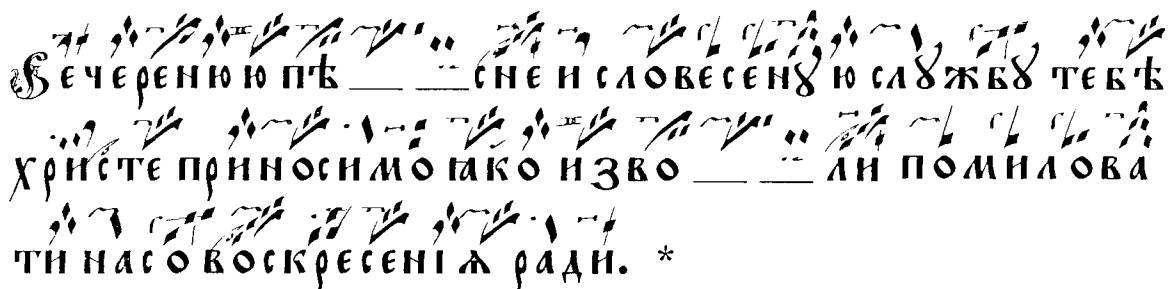 Вечеренюю пѣ__ __сне и словесенꙋю слꙋжбꙋ тебѣ
христе приносимо ꙗко изво__ __ли помилова
ти насо воскресенїѧ ради. *